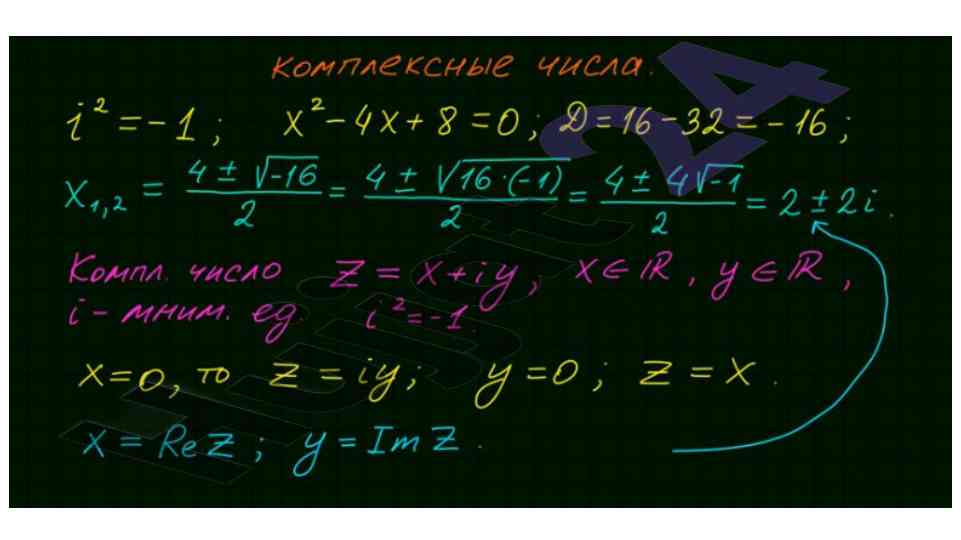 комплексные числа.
i² = -1 ; x² - 4x + 8 = 0 ; D = 16 - 32 = -16 ;
x₁,₂ = (4 ± √-16)/2 = (4 ± √16·(-1))/2 = (4 ± 4√-1)/2 = 2 ± 2i .
Компл. число z = x + iy ; x ∈ ℝ , y ∈ ℝ ,
i - мним. ед. i² = -1.
x = 0, то z = iy ; y = 0 ; z = x .
x = Re z ; y = Im z .